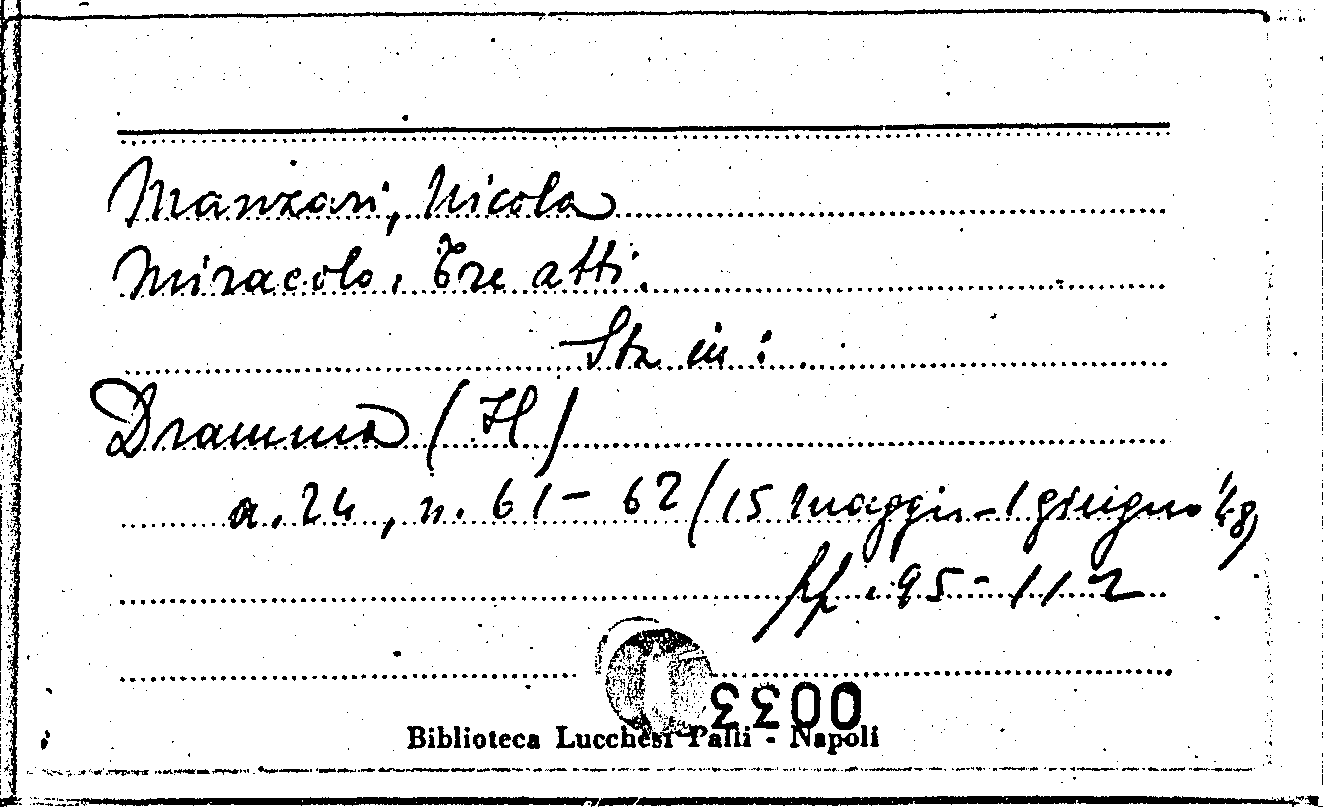 Manzari, Nicola
Miracolo. Tre atti.
Sta in:
Dramma (Il)
a. 24, n. 61-62 (15 maggio-1 giugno '48)
pp. 95-112
3300
Biblioteca Lucchesi Palli - Napoli